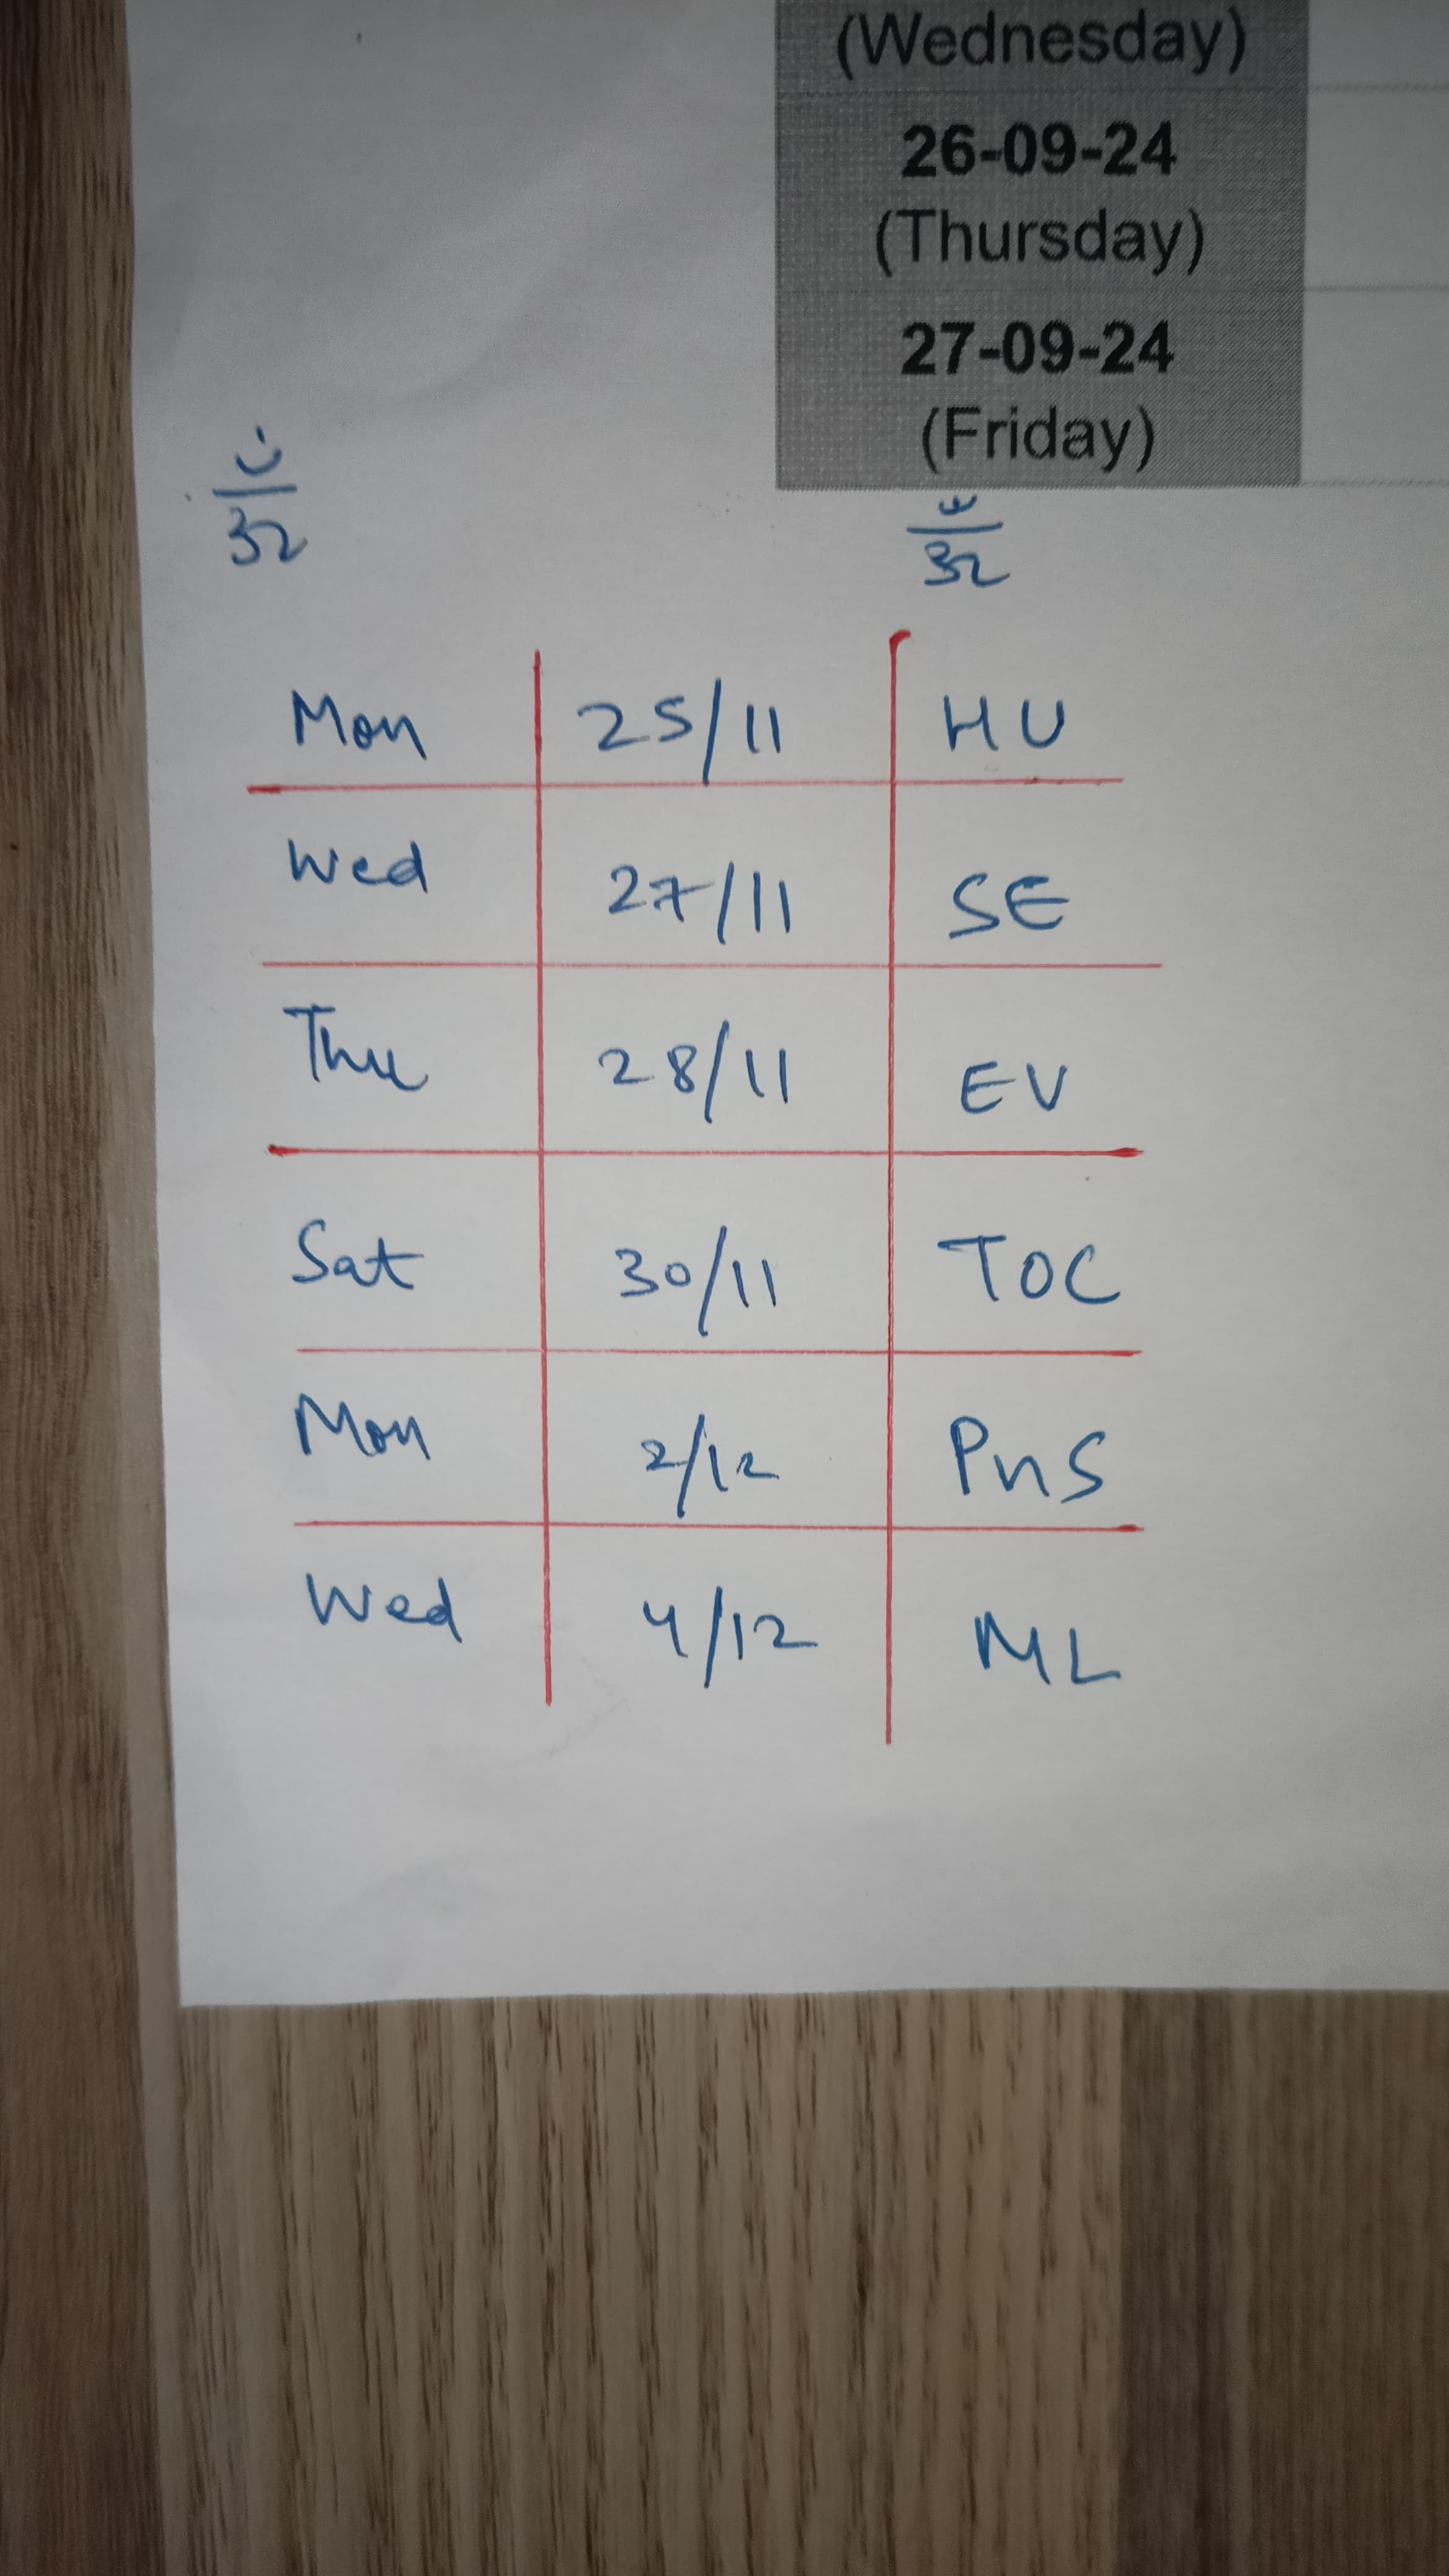 (Wednesday)
26-09-24
(Thursday)
27-09-24
(Friday)
32
32
Mon 25/11 HU
Wed 27/11 SE
Thu 28/11 EV
Sat 30/11 TOC
Mon 2/12 PnS
Wed 4/12 ML